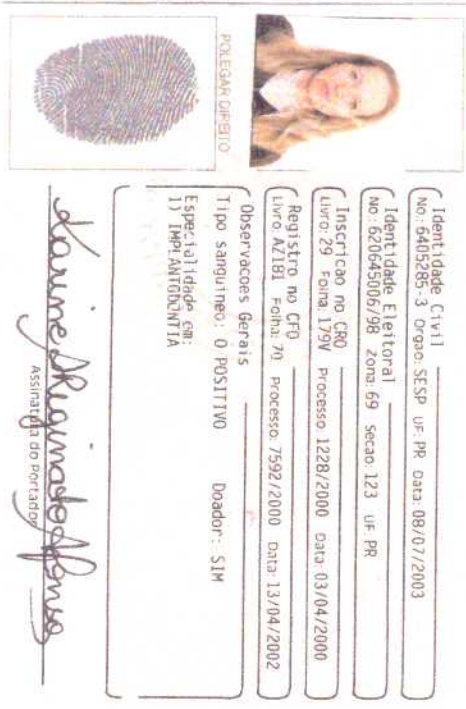 Identidade Civil
No.: 6405285-3 Orgao: SESP UF: PR Data: 08/07/2003
Identidade Eleitoral
No.: 620645006/98 Zona: 69 Secao: 123 UF: PR
Inscricao no CRO
Livro: 29 Folha: 179V Processo 1228/2000 Data: 03/04/2000
Registro no CFO
Livro: AZ181 Folha: 70 Processo: 7592/2000 Data: 13/04/2002
Observacoes Gerais
Tipo sanguineo: O POSITIVO Doador: SIM
Especialidade em:
1) IMPLANTODONTIA
POLEGAR DIREITO
Karine Afonso
Assinatura do Portador